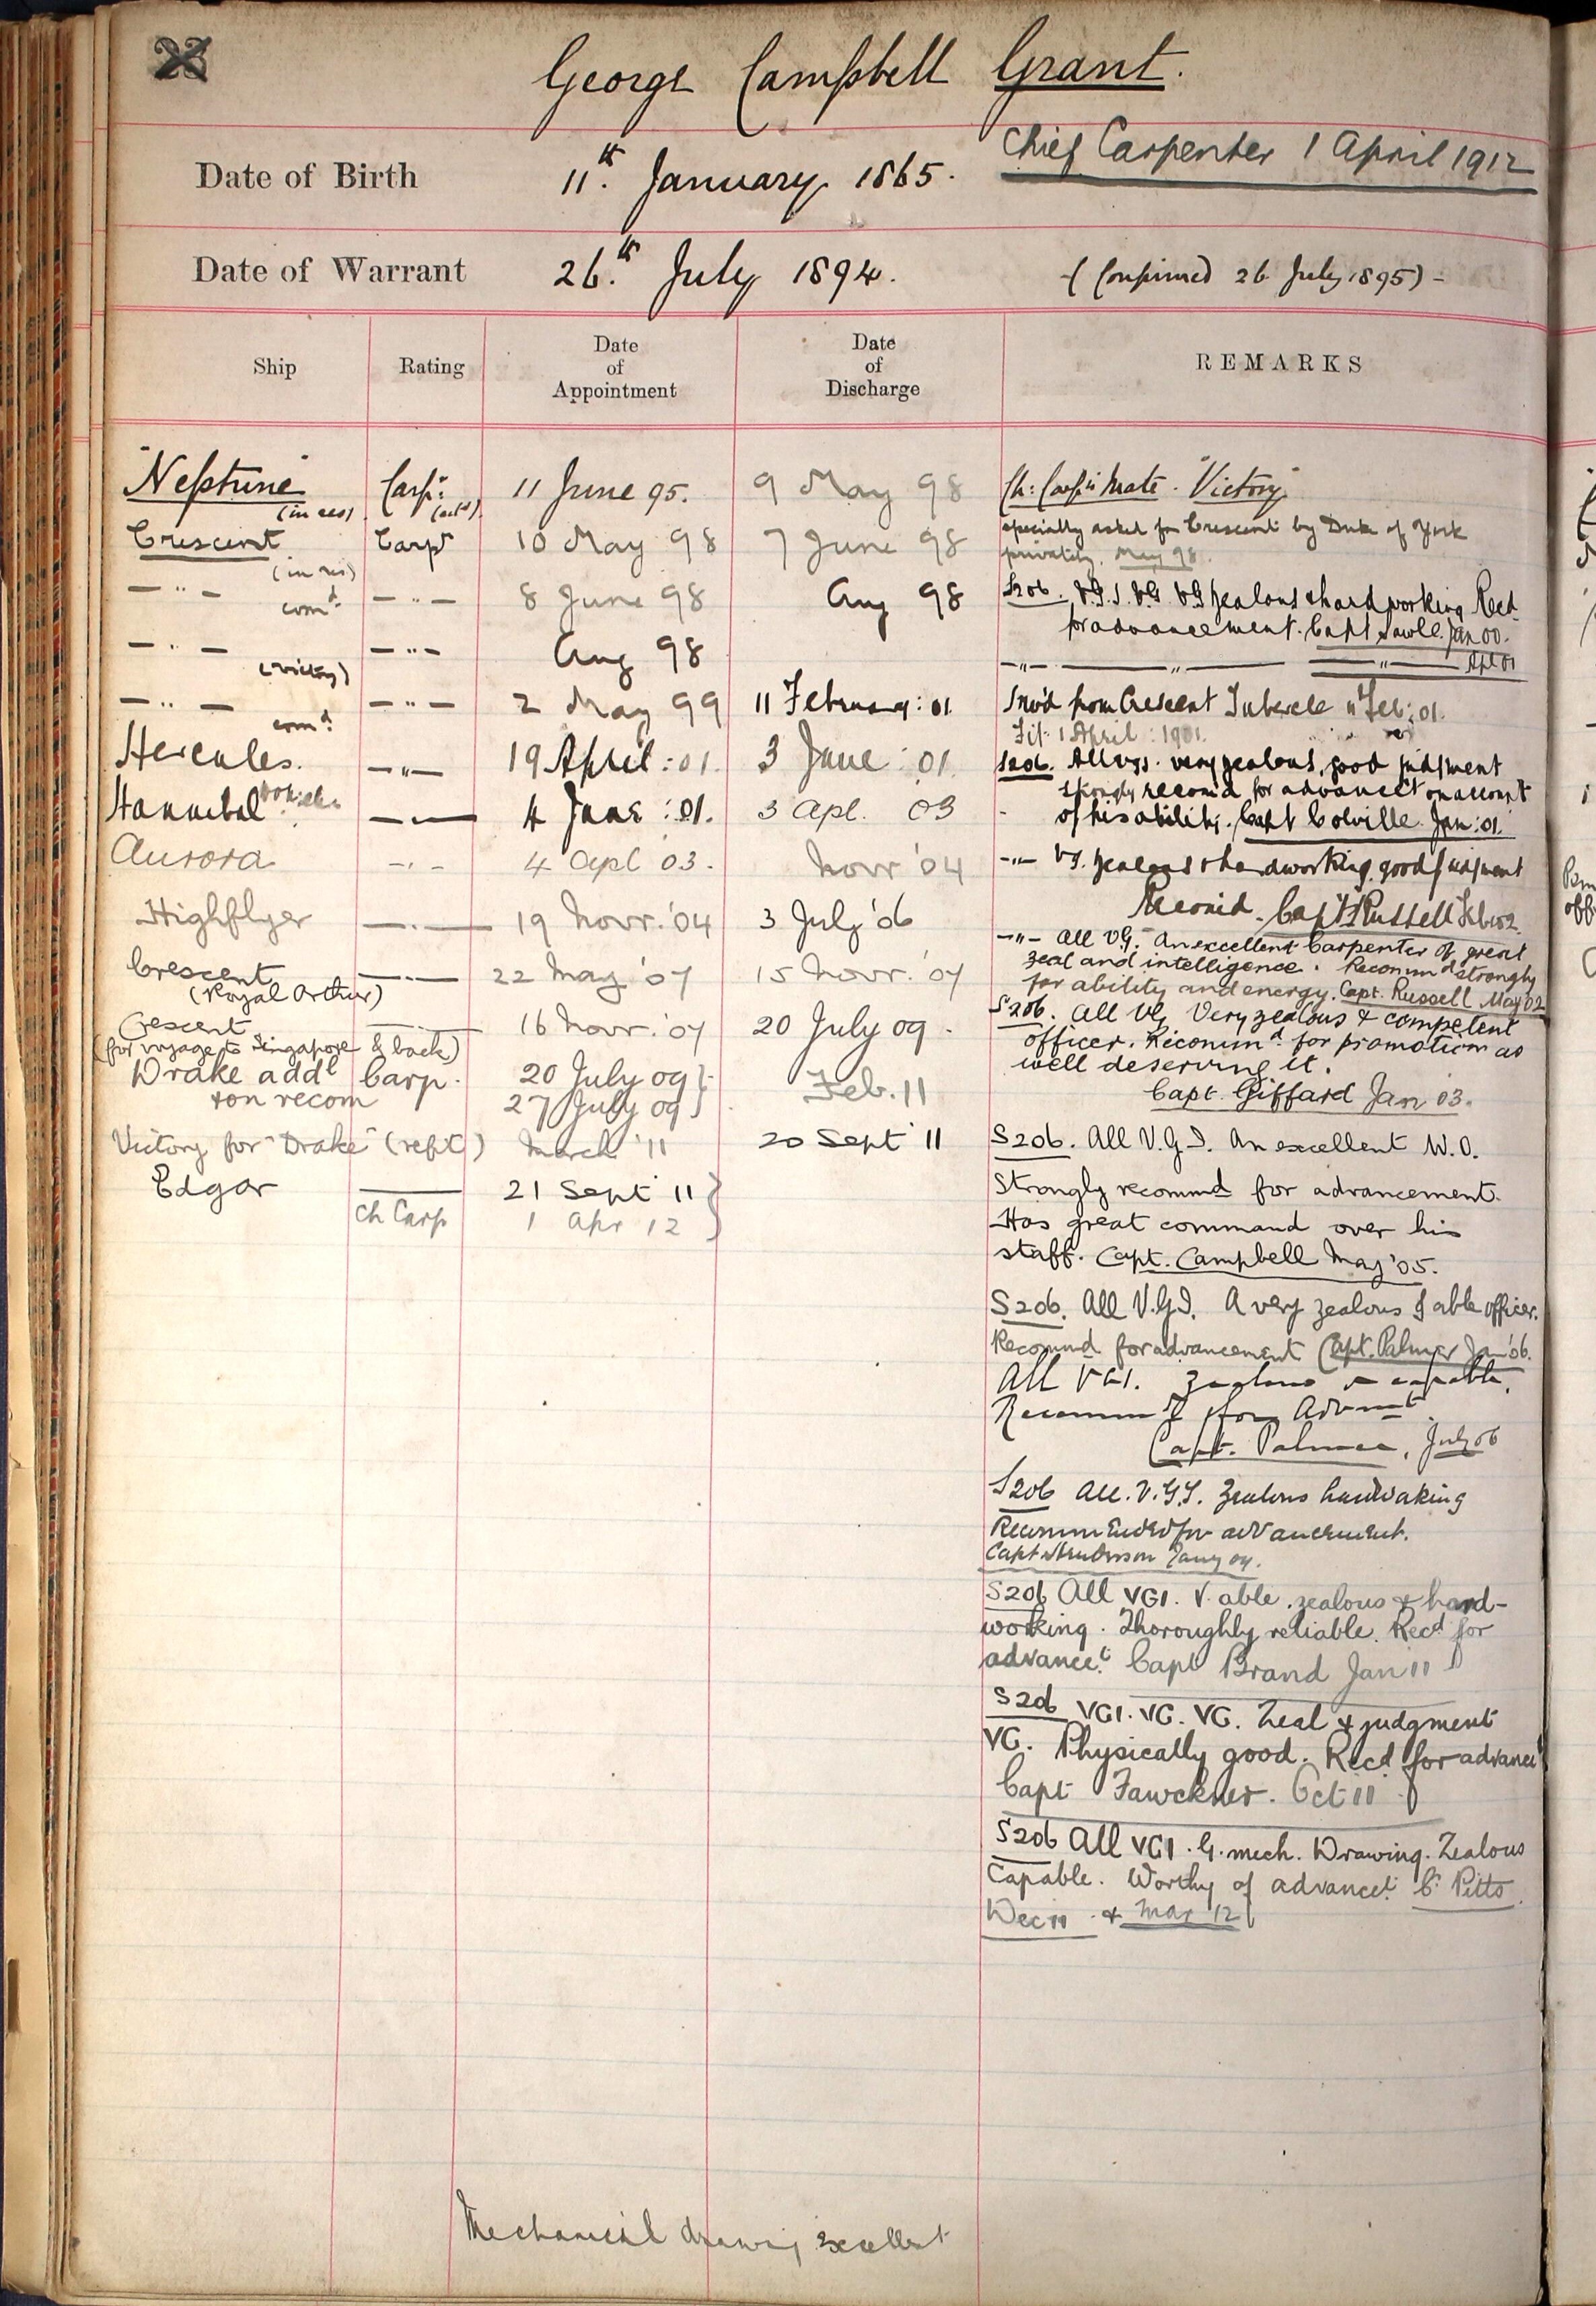 George Campbell Grant.
Chief Carpenter 1 April 1912
Date of Birth 11th. January 1865.
Date of Warrant 26.th July 1894. (Confirmed 26 July 1895)
Ship Rating Date of Appointment Date of Discharge REMARKS
"Neptune" Carpr. 11 June 95. 9 May 98 Ch: Carp.rs Mate "Victory"
(in res) (actg)
Crescent Carpr 10 May 98 7 June 98 specially asked for Crescent by Duke of York
(in res) privately. May 98.
— " — — " — 8 June 98 Aug 98 S206. V.G.I. V.G. V.G zealous & hardworking Recd
comd. for advancement. Capt Sawle. Jan 00.
— " — — " — Aug 98
(Victory) — " — — " — — " — Apl 01
— " — — " — 2 May 99 11 February: 01 Invd from Crescent Tubercle 11 Feb: 01.
comd. Fit 1 April: 1901.
Hercules. — " — 19 April: 01. 3 June: 01. S206. All vgs. very zealous, good judgment
strongly recomd for advancet on account
Hannibal — — 4 June: 01. 3 Apl. 03 of his ability. Capt Colville. Jan: 01.
Aurora — " — 4 Apl 03. Novr '04 — " — VG. zealous & hardworking. good judgment
Recomd. Capt Russell Feb 02.
Highflyer — " — 19 Novr. '04 3 July '06 — " — All V.G. An excellent Carpenter of great
zeal and intelligence. Recommd strongly
Crescent — " — 22 May '07 15 Novr. '07 for ability and energy. Capt. Russell May 02
(Royal Arthur)
Crescent — " — 16 Novr. '07 20 July 09. S206. All VG Very zealous & competent
(for voyage to Singapore & back) officer. Recommd. for promotion as
well deserving it.
Drake addl Carp. 20 July 09 } Feb. 11
Capt. Giffard Jan 03.
& on recom 27 July 09 }
Victory for "Drake" (refit) March '11 20 Sept '11 S206. All V.G.I. An excellent W.O.
Edgar — 21 Sept '11 } Strongly recommd for advancement.
Ch Carp 1 Apr 12 } Has great command over his
staff. Capt. Campbell May '05.
S206. All V.G.I. A very zealous & able officer.
Recommd for advancement Capt. Palmer Jan '06.
All VGI. Zealous & capable.
Recommd for Advmt.
Capt. Palmer, July 06
S206 All. V.G.I. Zealous hardworking
Recommended for advancement.
Capt Henderson Jany 09.
S206 All VGI. V. able, zealous & hard-
working. Thoroughly reliable. Recd for
advancet. Capt Brand Jan 11
S206 VGI. VG. VG. Zeal & judgment
VG. Physically good. Recd for advancet
Capt Fawckner. Oct 11
S206 All VGI. G. mech. Drawing. Zealous
Capable. Worthy of advancet. C. Pitts.
Dec 11 & Mar 12
Mechanical drawing excellent